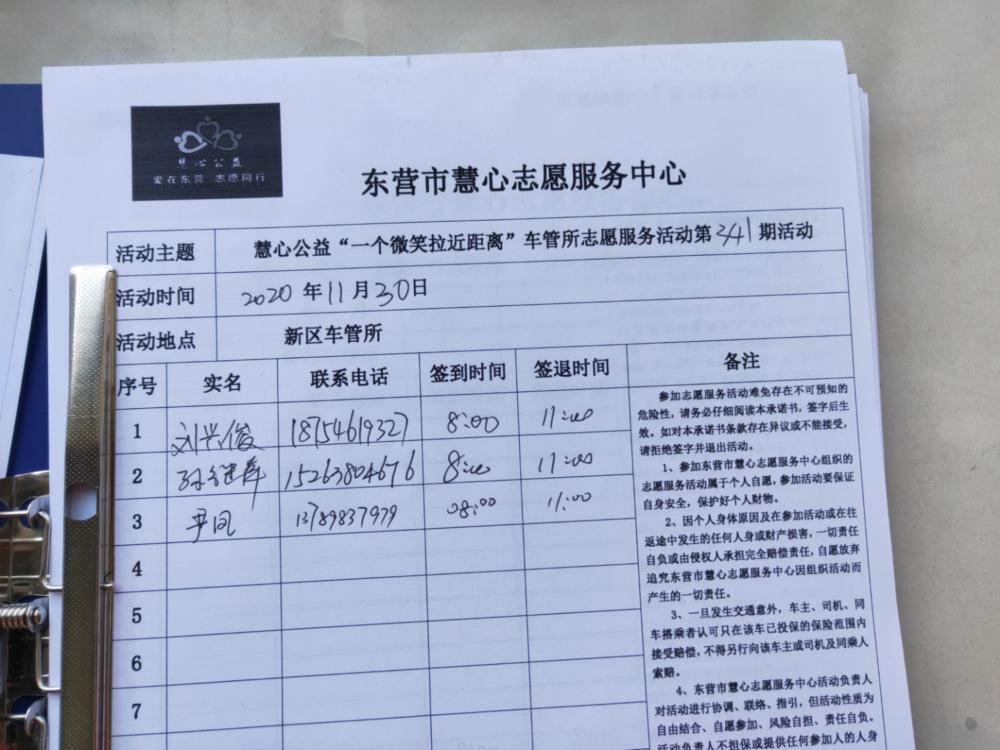 慧心公益
爱在东营 志愿同行
东营市慧心志愿服务中心
活动主题 慧心公益“一个微笑拉近距离”车管所志愿服务活动第341期活动
活动时间 2020年11月30日
活动地点 新区车管所
序号 实名 联系电话 签到时间 签退时间 备注
1 刘兴俊 18754619327 8:00 11:00
2 15263804676 8:00 11:00
3 尹凤 13789837979 08:00 11:00
4
5
6
7
参加志愿服务活动难免存在不可预知的
危险性，请务必仔细阅读本承诺书，签字后生
效。如对本承诺书条款存在异议或不能接受，
请拒绝签字并退出活动。
1、参加东营市慧心志愿服务中心组织的
志愿活动属于个人自愿，参加活动要保证
自身安全，保护好个人财物。
2、因个人身体原因及在参加活动或在往
返途中发生的任何人身或财产损害，一切责任
自负或由侵权人承担完全赔偿责任，自愿放弃
追究东营市慧心志愿服务中心因组织活动而
产生的一切责任。
3、一旦发生交通意外，车主、司机、同
车搭乘者认可只在该车已投保的保险范围内
接受赔偿，不得另行向该车主或司机及同乘人
索赔。
4、东营市慧心志愿服务中心活动负责人
对活动进行协调、联络、指引，但活动性质为
自由结合、自愿参加、风险自担、责任自负。
活动负责人不担保或提供任何参加人的人身